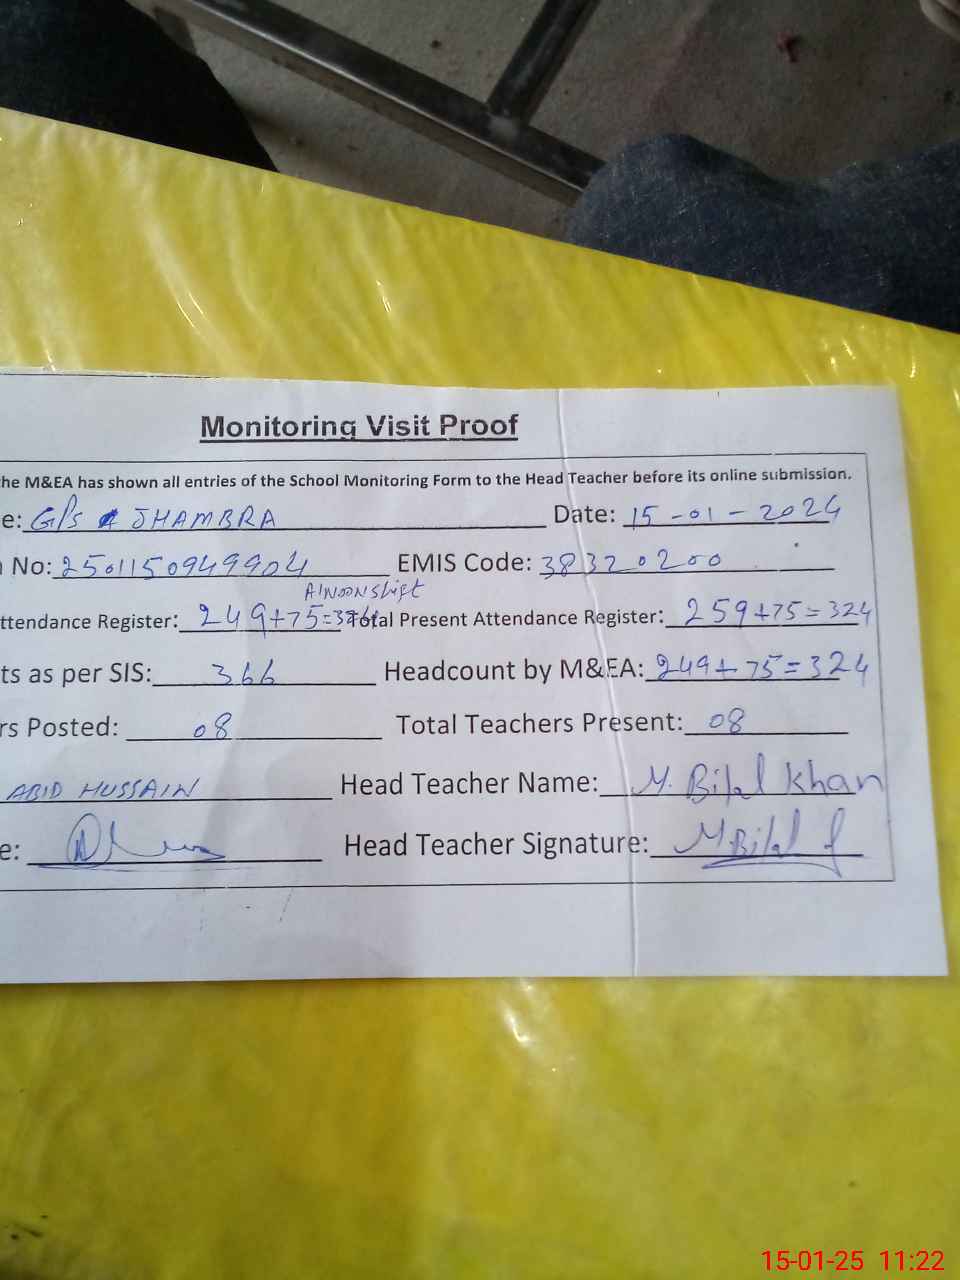 Monitoring Visit Proof
he M&EA has shown all entries of the School Monitoring Form to the Head Teacher before its online submission.
e: G/PS JHAMBRA Date: 15-01-2024
No: 2501150949904 EMIS Code: 38320200
A/Noon Shift
ttendance Register: 249+75= Total Present Attendance Register: 259+75=324
ts as per SIS: 366 Headcount by M&EA: 249+75=324
rs Posted: 08 Total Teachers Present: 08
ABID HUSSAIN Head Teacher Name: M. Bilal Khan
e: Head Teacher Signature: M.Bilal
15-01-25 11:22